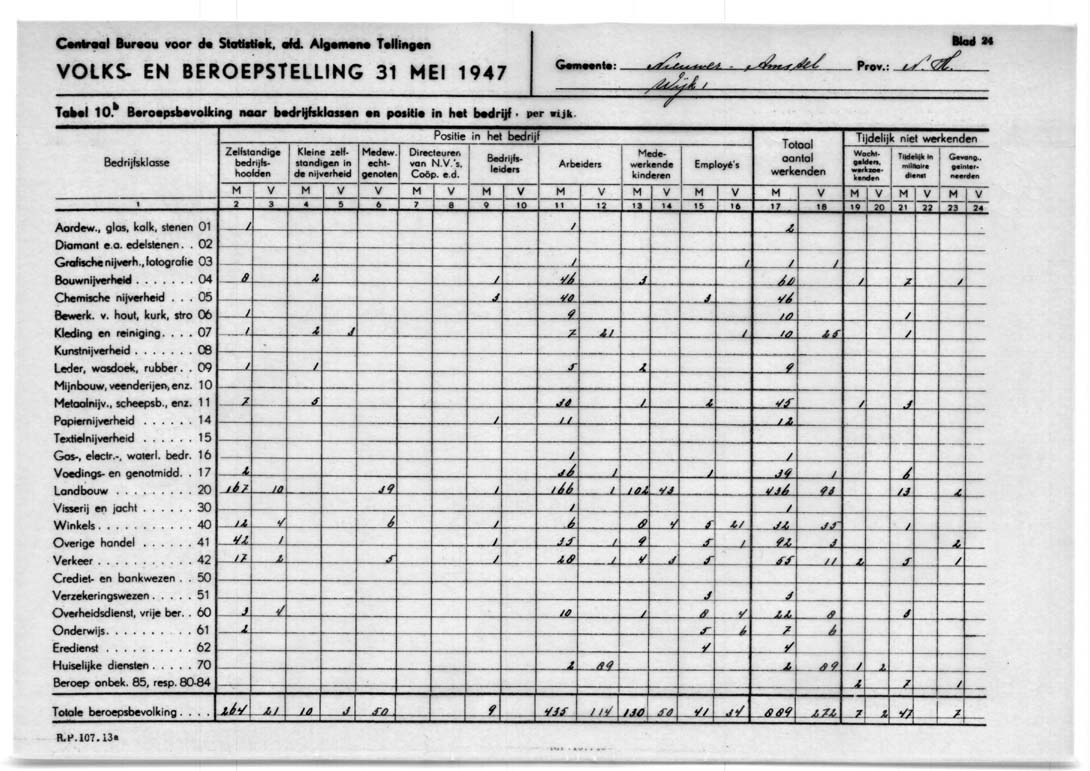 Centraal Bureau voor de Statistiek, afd. Algemene Tellingen
Blad 24
VOLKS- EN BEROEPSTELLING 31 MEI 1947
Gemeente: Nieuwer-Amstel Prov.: N. H.
Wijk 1
Tabel 10.b Beroepsbevolking naar bedrijfsklassen en positie in het bedrijf. per wijk.
Positie in het bedrijf
Bedrijfsklasse
Zelfstandige bedrijfs-hoofden
Kleine zelf-standigen in de nijverheid
Medew. echt-genoten
Directeuren van N.V.'s, Coöp. e.d.
Bedrijfs-leiders
Arbeiders
Mede-werkende kinderen
Employé's
Totaal aantal werkenden
Tijdelijk niet werkenden
Wacht-gelders, werkzoe-kenden
Tijdelijk in militaire dienst
Gevang., geïnter-neerden
M V M V V M V M V M V M V M V M V M V M V M V
1 2 3 4 5 6 7 8 9 10 11 12 13 14 15 16 17 18 19 20 21 22 23 24
Aardew., glas, kalk, stenen 01 1 1 2
Diamant e.a. edelstenen . . 02
Grafische nijverh., fotografie 03 1 1 1 1
Bouwnijverheid . . . . . . . 04 8 2 1 46 3 60 1 7 1
Chemische nijverheid . . . 05 3 40 3 46
Bewerk. v. hout, kurk, stro 06 1 9 10 1
Kleding en reiniging . . . . 07 1 2 3 7 21 1 10 25 1
Kunstnijverheid . . . . . . . 08
Leder, wasdoek, rubber . . 09 1 1 5 2 9
Mijnbouw, veenderijen, enz. 10
Metaalnijv., scheepsb., enz. 11 7 5 30 1 2 45 1 3
Papiernijverheid . . . . . . 14 1 11 12
Textielnijverheid . . . . . . 15
Gas-, electr.-, waterl. bedr. 16 1 1
Voedings- en genotmidd. . 17 2 36 1 1 39 1 6
Landbouw . . . . . . . . . 20 167 10 39 1 166 1 102 43 436 93 13 2
Visserij en jacht . . . . . . 30 1 1
Winkels . . . . . . . . . . . 40 12 4 6 1 6 8 4 5 21 32 35 1
Overige handel . . . . . . . 41 42 1 1 35 1 9 5 1 92 3 2
Verkeer . . . . . . . . . . . 42 17 2 5 1 28 1 4 3 5 55 11 2 5 1
Crediet- en bankwezen . . 50
Verzekeringswezen . . . . . 51 3 3
Overheidsdienst, vrije ber. . 60 3 4 10 1 8 4 22 8 3
Onderwijs . . . . . . . . . . 61 2 5 6 7 6
Eredienst . . . . . . . . . . 62 4 4
Huiselijke diensten . . . . . 70 2 89 2 89 1 2
Beroep onbek. 85, resp. 80-84 2 7 1
Totale beroepsbevolking . . . . 264 21 10 3 50 9 435 114 130 50 41 34 889 272 7 2 47 7
R.P.107.13a